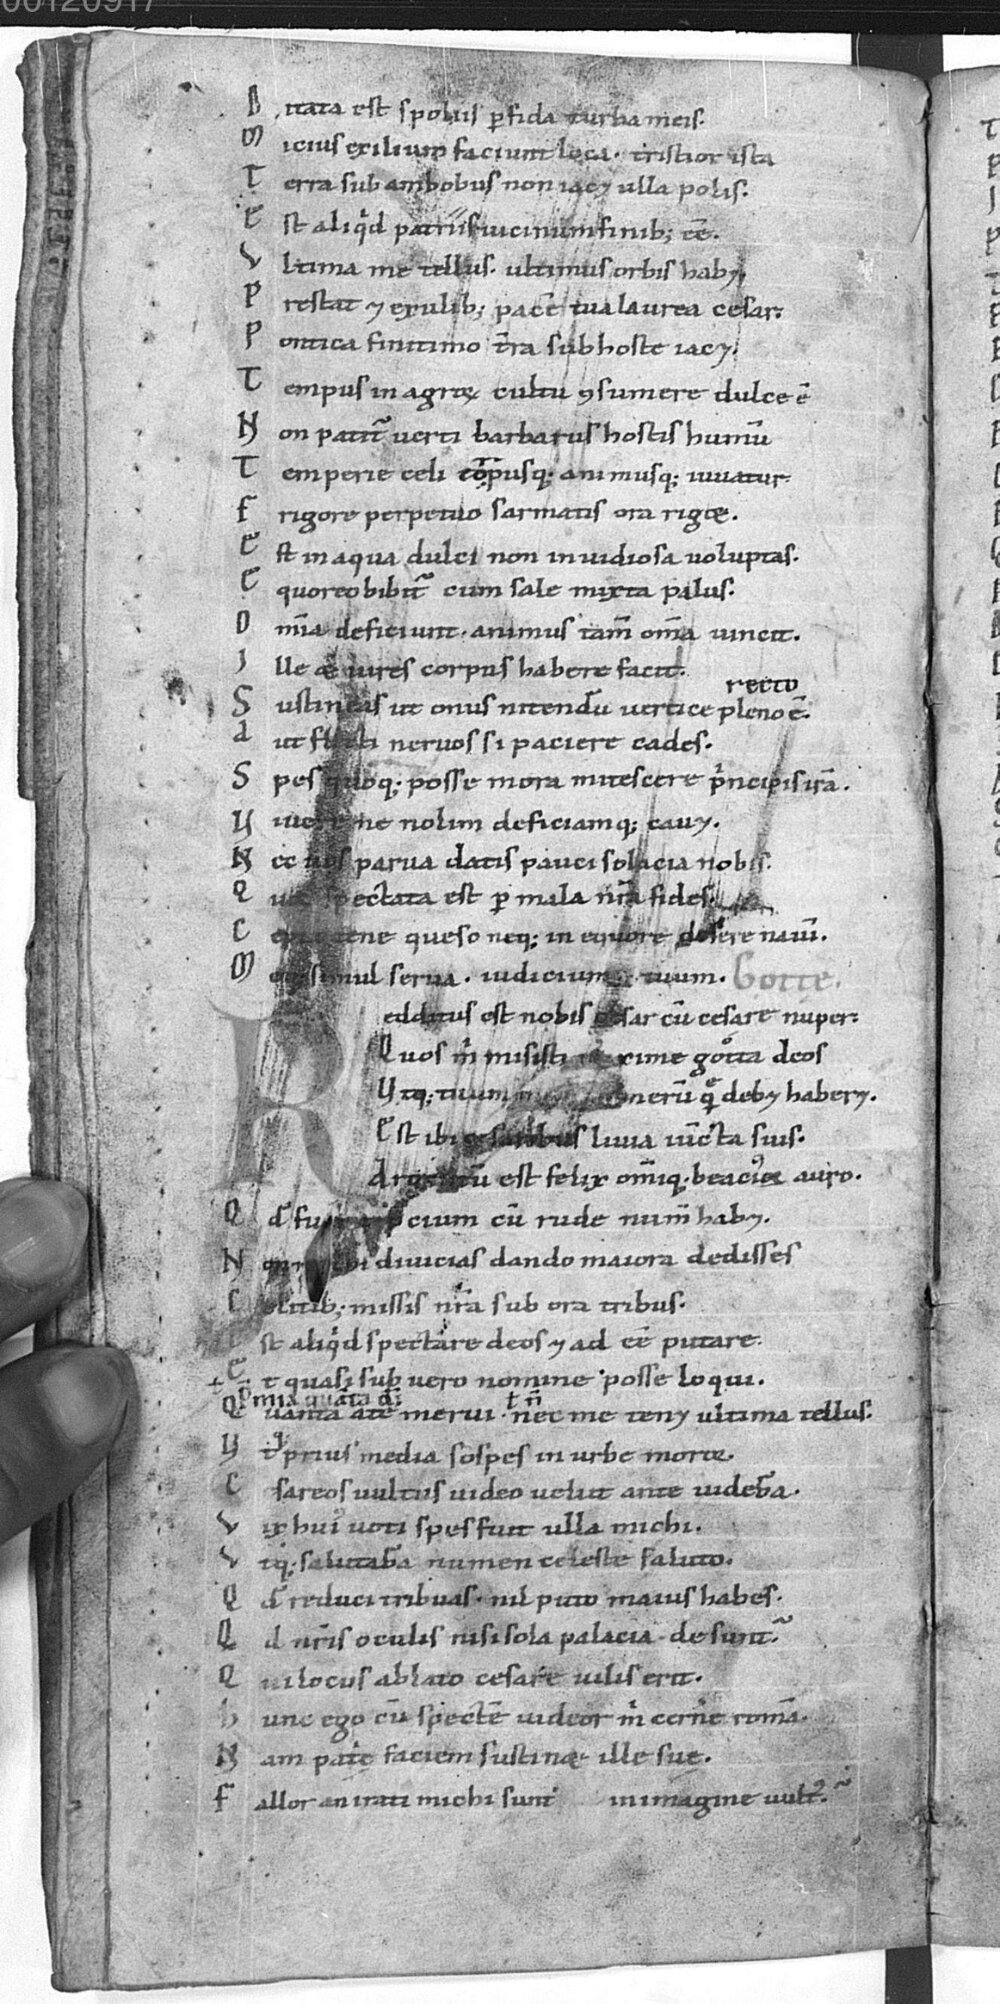 00120917
D itata est spoliis ꝑfida turba meis.
M icius exilium faciunt loca. tristior ista
T erra sub ambobus non iacꝫ ulla polis.
E st aliqͥd patriis uicinum finib; eē.
V ltima me tellus. ultimus orbis habꝫ.
P restat ⁊ exulib; pacē tua laurea cesar.
P ontica finitimo t̄ra sub hoste iacꝫ.
T empus in agroꝝ cultu ꝯsumere dulce ē
N on patit᷑ uerti barbarus hostis humū
T emperie celi corpusq; animusq; iuuatur.
F rigore perpetuo sarmatis ora rigent.
E st in aqua dulci non inuidiosa uoluptas.
E quoreo bibit᷑ cum sale mixta palus.
O mīa deficiunt. animus tam̄ om̄a uincit.
I lle & uires corpus habere facit.
recto
S ustineas ut onus nitendū uertice pleno ē.
A ut flecti neruos si paciere cades.
S pes quoq; posse mora mitescere pͥncipis irā.
V iuere ne nolim deficiamq; cauꝫ.
N ec uos parua datis pauci solacia nobis.
Q uo spectata est ꝑ mala nr̄a fides.
C epta tene queso neq; in equore desere nauī.
M eq; simul serua. iudicium tuum. Gotte.
R edditus est nobis cesar cū cesare nuper.
Quos m̄ misisti maxime gotta deos
Vtq; tuum numerū qͣ̄ debꝫ haberꝫ.
Est ibi cesaribus liuia iūcta suis.
Argentū est felix om̄iq. beacius auro.
Q d̄ fuerit cium cū rude num̄ habꝫ.
N on michi diuicias dando maiora dedisses
C elitib; missis nr̄a sub ora tribus.
E st aliqͥd spectare deos ⁊ ad eē putare.
E t quasi sub uero nomine posse loqui.
Q uanta ate merui. nec me tenꝫ ultima tellus.
V tq; prius media sospes in urbe moror.
C esareos uultus uideo uelut ante uidebā.
V ix hui᷒ uoti spes fuit ulla michi.
V tq; salutabā numen celeste saluto.
Q d̄ reduci tribuas. nil puto maius habes.
Q d nr̄is oculis nisi sola palacia desunt.
Q ui locus ablato cesare uilis erit.
H unc ego cū spectē uideor m̄ cerne᷒ romā.
N am patͥe faciem sustinet ille sue.
F allor an irati michi sunt in imagine uult᷒.